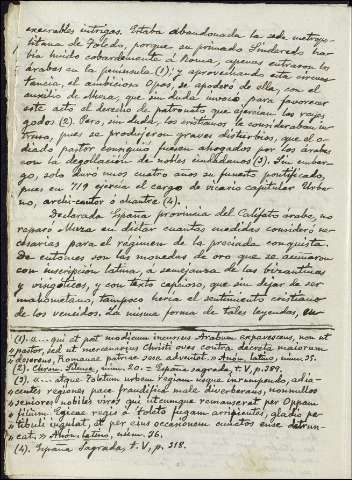 execrables intrigas. Estaba abandonada la sede metropo-
litana de Toledo, porque su primado Sinderedo ha-
bía huido cobardemente á Roma, apenas entraron los
árabes en la península (1); y aprovechando esta circuns-
tancia, el ambicioso Opas, se apoderó de ella, con el
auxilio de Muza, que sin duda invocó para favorecer
este acto el derecho de patronato que ejercían los reyes
godos (2). Pero, sin duda, los cristianos le consideraban in-
truso, pues se produjeron graves disturbios, que el o-
diado pastor consiguió fuesen ahogados por los árabes
con la degollación de nobles ciudadanos (3). Sin embar-
go, solo duró unos cuatro años su funesto pontificado,
pues en 719 ejercía el cargo de vicario capitular Urba-
no, archi-cantor ó chantre (4).
Declarada España provincia del Califato árabe, no
reparó Muza en dictar cuantas medidas consideró ne-
cesarias para el régimen de la preciada conquista.
De entonces son las monedas de oro que se acuñaron
con inscripción latina, á semejanza de las bizantinas
y visigóticas, y con texto capcioso, que sin dejar de ser
mahometano, tampoco hería el sentimiento cristiano
de los vencidos. La misma forma de tales leyendas, en
(1). «... qui et post modicum incursus Arabum expavescens, non ut
» pastor, sed ut mercenarius Christi oves contra decreta maiorum
» deserens, Romanae patriae sese adventat.» Anón. latino, núm. 35.
(2). Chron. Silense, núm. 20. = España sagrada, t. V, p. 389.
(3). «... atque Toletum urbem regiam usque inrumpendo, adia-
» centes regiones pace fraudifica male diverberans, nonnullos
» seniores nobiles viros qui utcumque remanserat per Oppam
» filium Egicae regis á Toleto fugam arripientes, gladio pa-
» tibuli iugulat, et per eius occasionem cunctos ense detrun-
» cat.» Anón. latino, núm. 36.
(4). España Sagrada, t. V, p. 318.